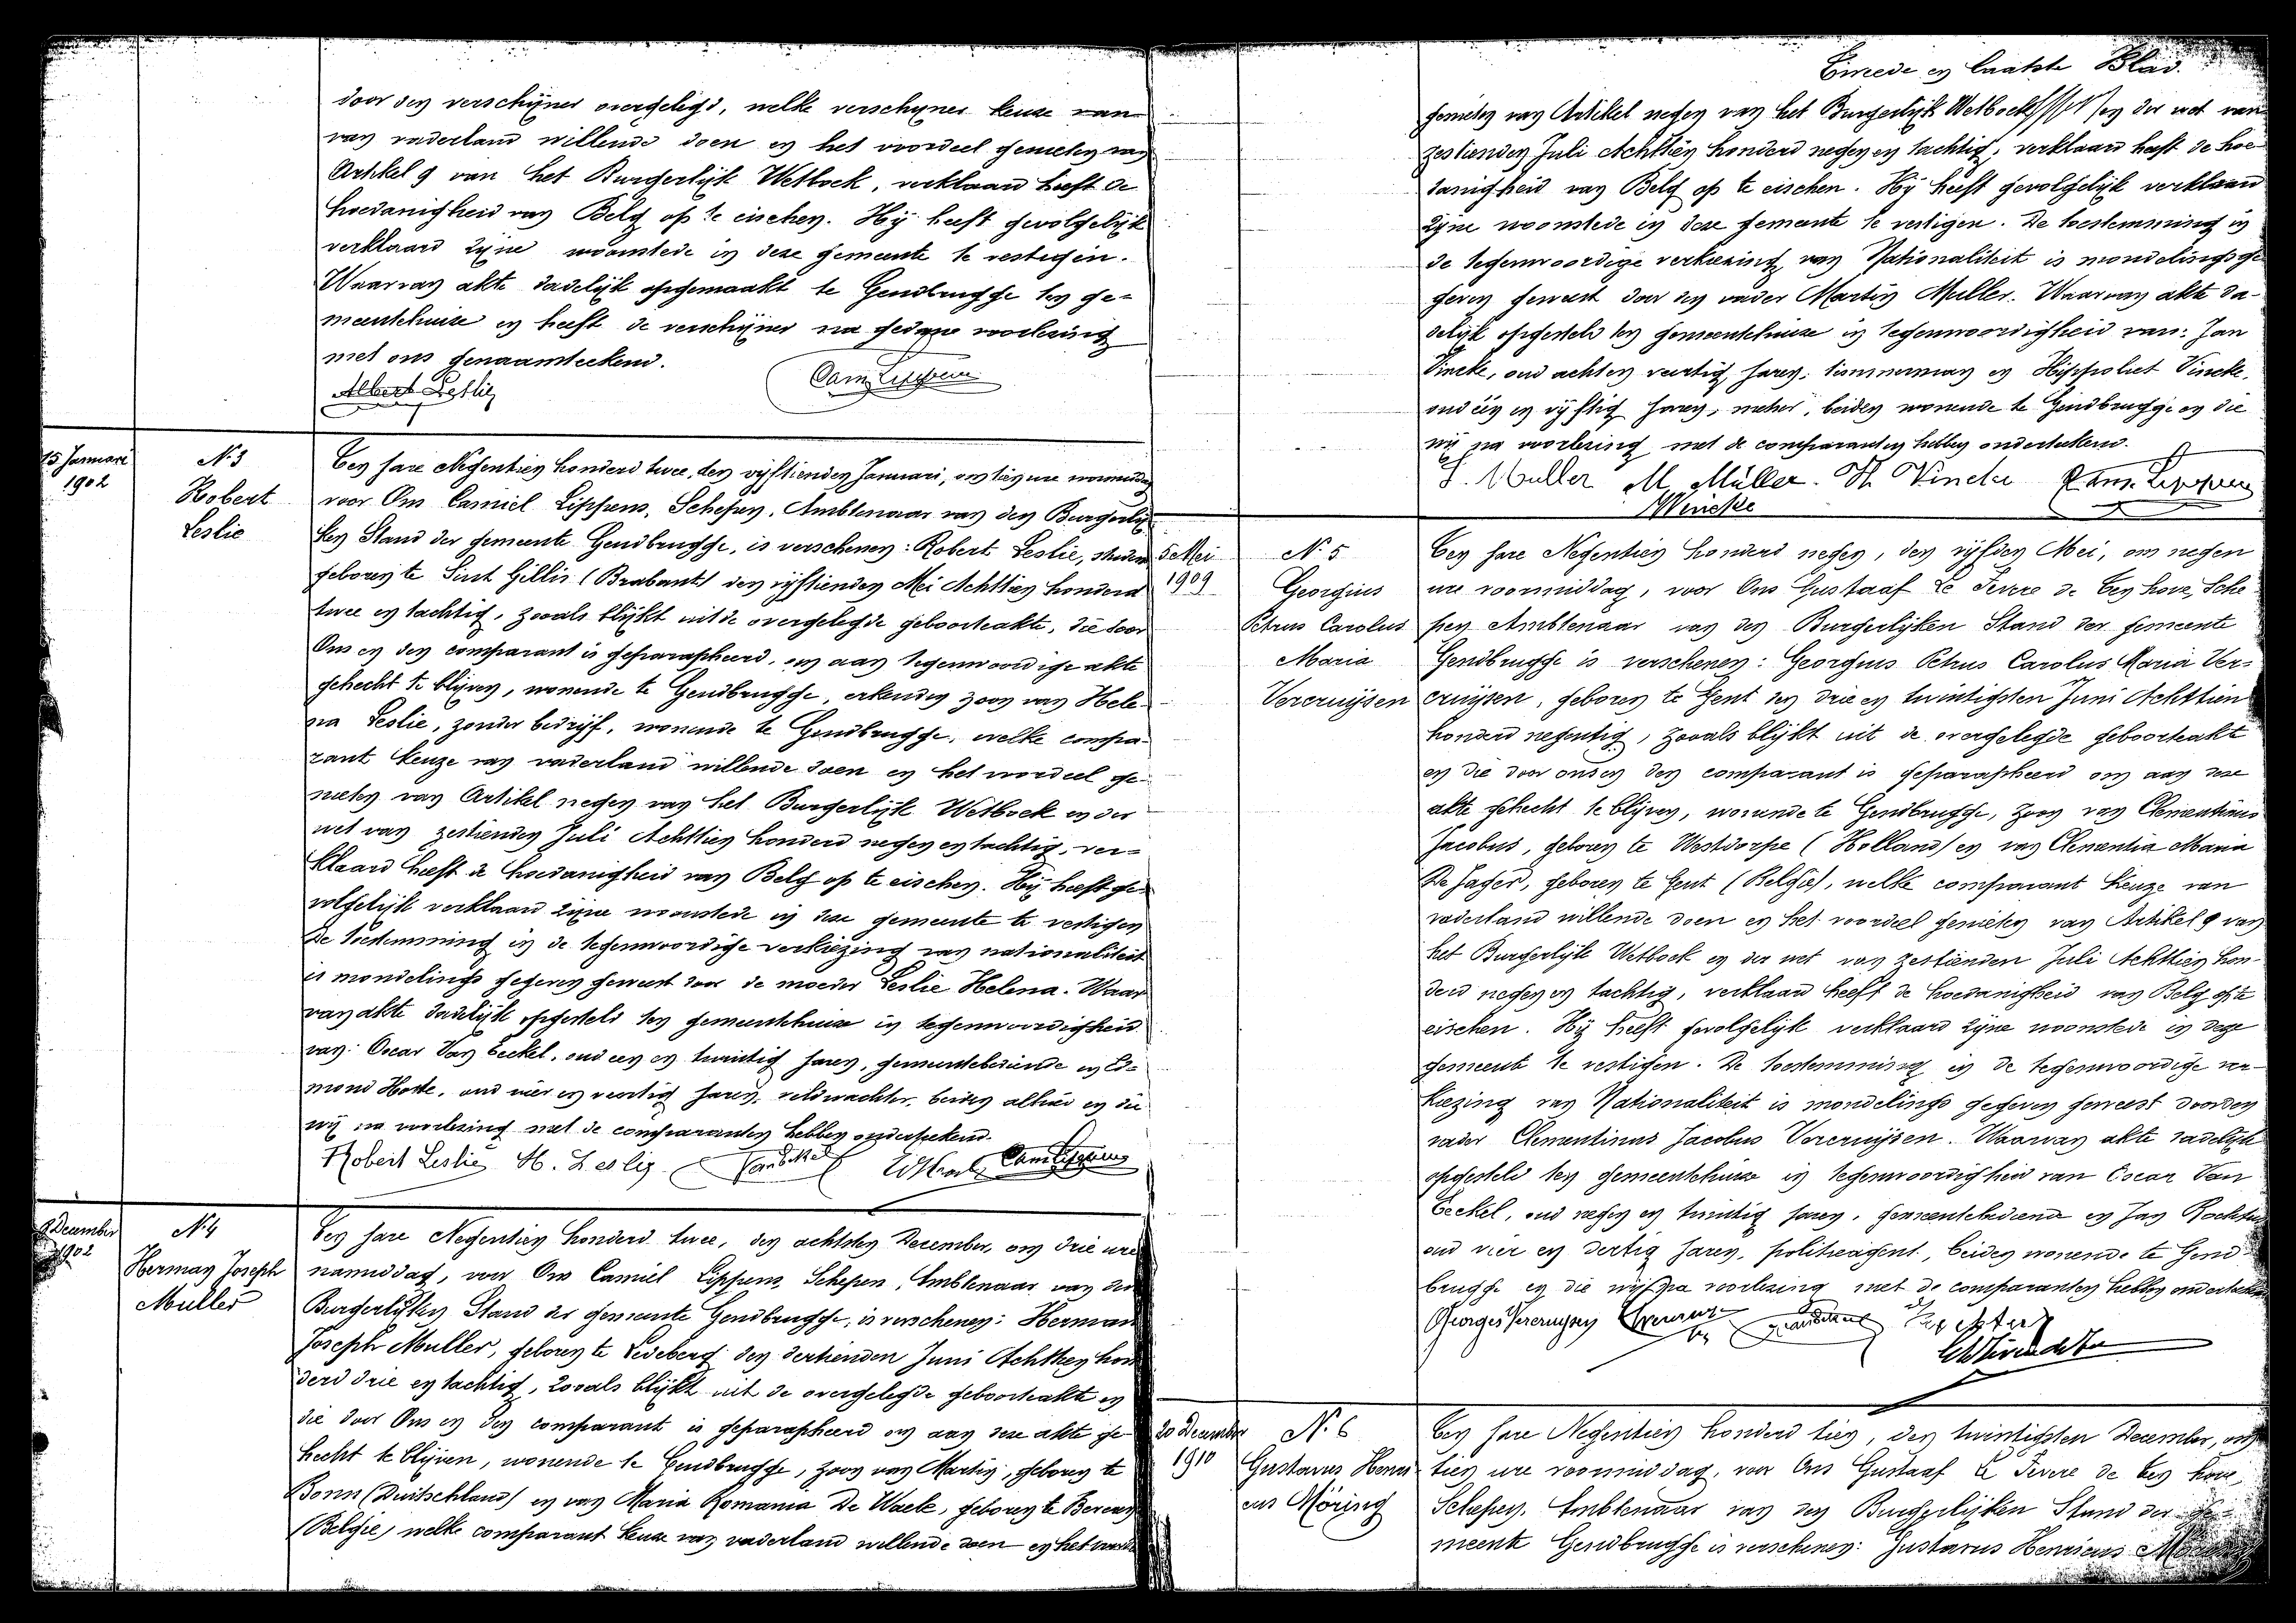 door den verschijner overgelegd, welke verschyner keuze van
van vaderland willende doen en het voordeel genieten van
Artikel 9 van het Burgerlijk Wetboek, verklaard heeft de
hoedanigheid van Belg op te eischen. Hij heeft gevolgelijk
verklaard zijne woonstede in deze gemeente te vestigen.
Waarvan akte dadelijk opgemaakt te Gendbrugge ten ge-
meentehuize en heeft de verschijner na gedane voorlezing
met ons genaamteekend.
Albert Leslie Cam Lippens
15 Januari
1902
N. 3
Robert
Leslie
Ten jare Negentien honderd twee, den vijftienden Januari, om tien ure voormiddag
voor Ons Camiel Lippens, Schepen, Ambtenaar van den Burgerlij
ken Stand der gemeente Gendbrugge, is verschenen: Robert Leslie,
geboren te Sint Gillis (Brabant) den vijftienden Mei Achttien honderd
twee en tachtig, zooals blijkt uit de overgelegde geboorteakte, die door
Ons en den comparant is geparapheerd, om aan tegenwoordige akte
gehecht te blijven, wonende te Gendbrugge, erkenden zoon van Hele-
na Leslie, zonder bedrijf, wonende te Gendbrugge, welke compa-
rant keuze van vaderland willende doen en het voordeel ge-
nieten van Artikel negen van het Burgerlijk Wetboek en der
wet van zestienden Juli Achttien honderd negen en tachtig, ver-
klaard heeft de hoedanigheid van Belg op te eischen. Hij heeft ge-
volgelijk verklaard zijne woonstede in deze gemeente te vestigen
De toestemming in de tegenwoordige verkiezing van nationaliteit
is mondelings gegeven geweest door de moeder Leslie Helena. Waar
van akte dadelijk opgesteld ten gemeentehuize in tegenwoordigheid
van: Oscar Van Eeckel, oud een en twintig jaren, gemeentebediende en Ed-
mond Hoste, oud vier en veertig jaren, veldwachter, beiden alhier en die
wij na voorlezing met de comparanten hebben onderteekend.
Robert Leslie H. Leslie Cam Lippens
8 December
1902
N. 4
Herman Joseph
Muller
Ten jare Negentien honderd twee, den achtsten December, om drie ure
namiddag, voor Ons Camiel Lippens, Schepen, Ambtenaar van den
Burgerlijken Stand der gemeente Gendbrugge, is verschenen: Herman
Joseph Muller, geboren te Ledeberg den dertienden Juni Achttien hon
derd drie en tachtig, zooals blijkt uit de overgelegde geboorteakte en
die door Ons en den comparant is geparapheerd om aan deze akte ge-
hecht te blijven, wonende te Gendbrugge, zoon van Martin, geboren te
Bonn (Duitschland) en van Maria Romania De Waele, geboren te
(Belgie) welke comparant keuze van vaderland willende doen en het
Tweede en laatste Blad.
genieten van Artikel negen van het Burgerlijk Wetboek en der wet van
zestienden Juli Achttien honderd negen en tachtig, verklaard heeft de hoe
danigheid van Belg op te eischen. Hij heeft gevolgelijk verklaard
zijne woonstede in deze gemeente te vestigen. De toestemming in
de tegenwoordige verkiezing van Nationaliteit is mondelings ge
geven geweest door den vader Martin Muller. Waarvan akte da-
delijk opgesteld ten gemeentehuize in tegenwoordigheid van: Jan
Vincke, oud acht en veertig jaren, timmerman en Hippoliet Vincke,
oud één en vijftig jaren, metser, beiden wonende te Gendbrugge en die
wij na voorlezing met de comparanten hebben onderteekend.
J. Muller M. Müller. H. Vincke Cam. Lippens
J Vincke
5 Mei
1909
N. 5
Georgius
Petrus Carolus
Maria
Vercruijsen
Ten jare Negentien honderd negen, den vijfden Mei, om negen
ure voormiddag, voor Ons Gustaaf Le Fevere de Ten hove, Sche
pen Ambtenaar van den Burgerlijken Stand der gemeente
Gendbrugge is verschenen: Georgius Petrus Carolus Maria Ver-
cruijsen, geboren te Gent den drie en twintigsten Juni Achttien
honderd negentig, zooals blijkt uit de overgelegde geboorteakte
en die door ons en den comparant is geparapheerd om aan deze
akte gehecht te blijven, wonende te Gendbrugge, zoon van Clementinus
Jacobus, geboren te Westdorpe (Holland) en van Clementia Maria
De Jager, geboren te Gent (Belgie), welke comparant keuze van
vaderland willende doen en het voordeel genieten van Artikel 9 van
het Burgerlijk Wetboek en der wet van zestienden Juli Achttien hon-
derd negen en tachtig, verklaard heeft de hoedanigheid van Belg op te
eischen. Hij heeft gevolgelijk verklaard zijne woonstede in deze
gemeente te vestigen. De toestemming in de tegenwoordige ver-
kiezing van Nationaliteit is mondelings gegeven geweest door den
vader Clementinus Jacobus Vercruijsen. Waarvan akte dadelijk
opgesteld ten gemeentehuize in tegenwoordigheid van Oscar Van
Eeckel, oud negen en twintig jaren, gemeentebediende en Jan
oud vier en dertig jaren, politieagent, beiden wonende te Gend-
brugge en die wij na voorlezing met de comparanten hebben onderteekend
Georges Vercruysen
20 December
1910
N. 6
Gustavus Henri
cus Möring
Ten jare Negentien honderd tien, den twintigsten December, om
tien ure voormiddag, voor Ons Gustaaf Le Fevere de Ten hove,
Schepen, Ambtenaar van den Burgerlijken Stand der ge-
meente Gendbrugge is verschenen: Gustavus Henricus Möring